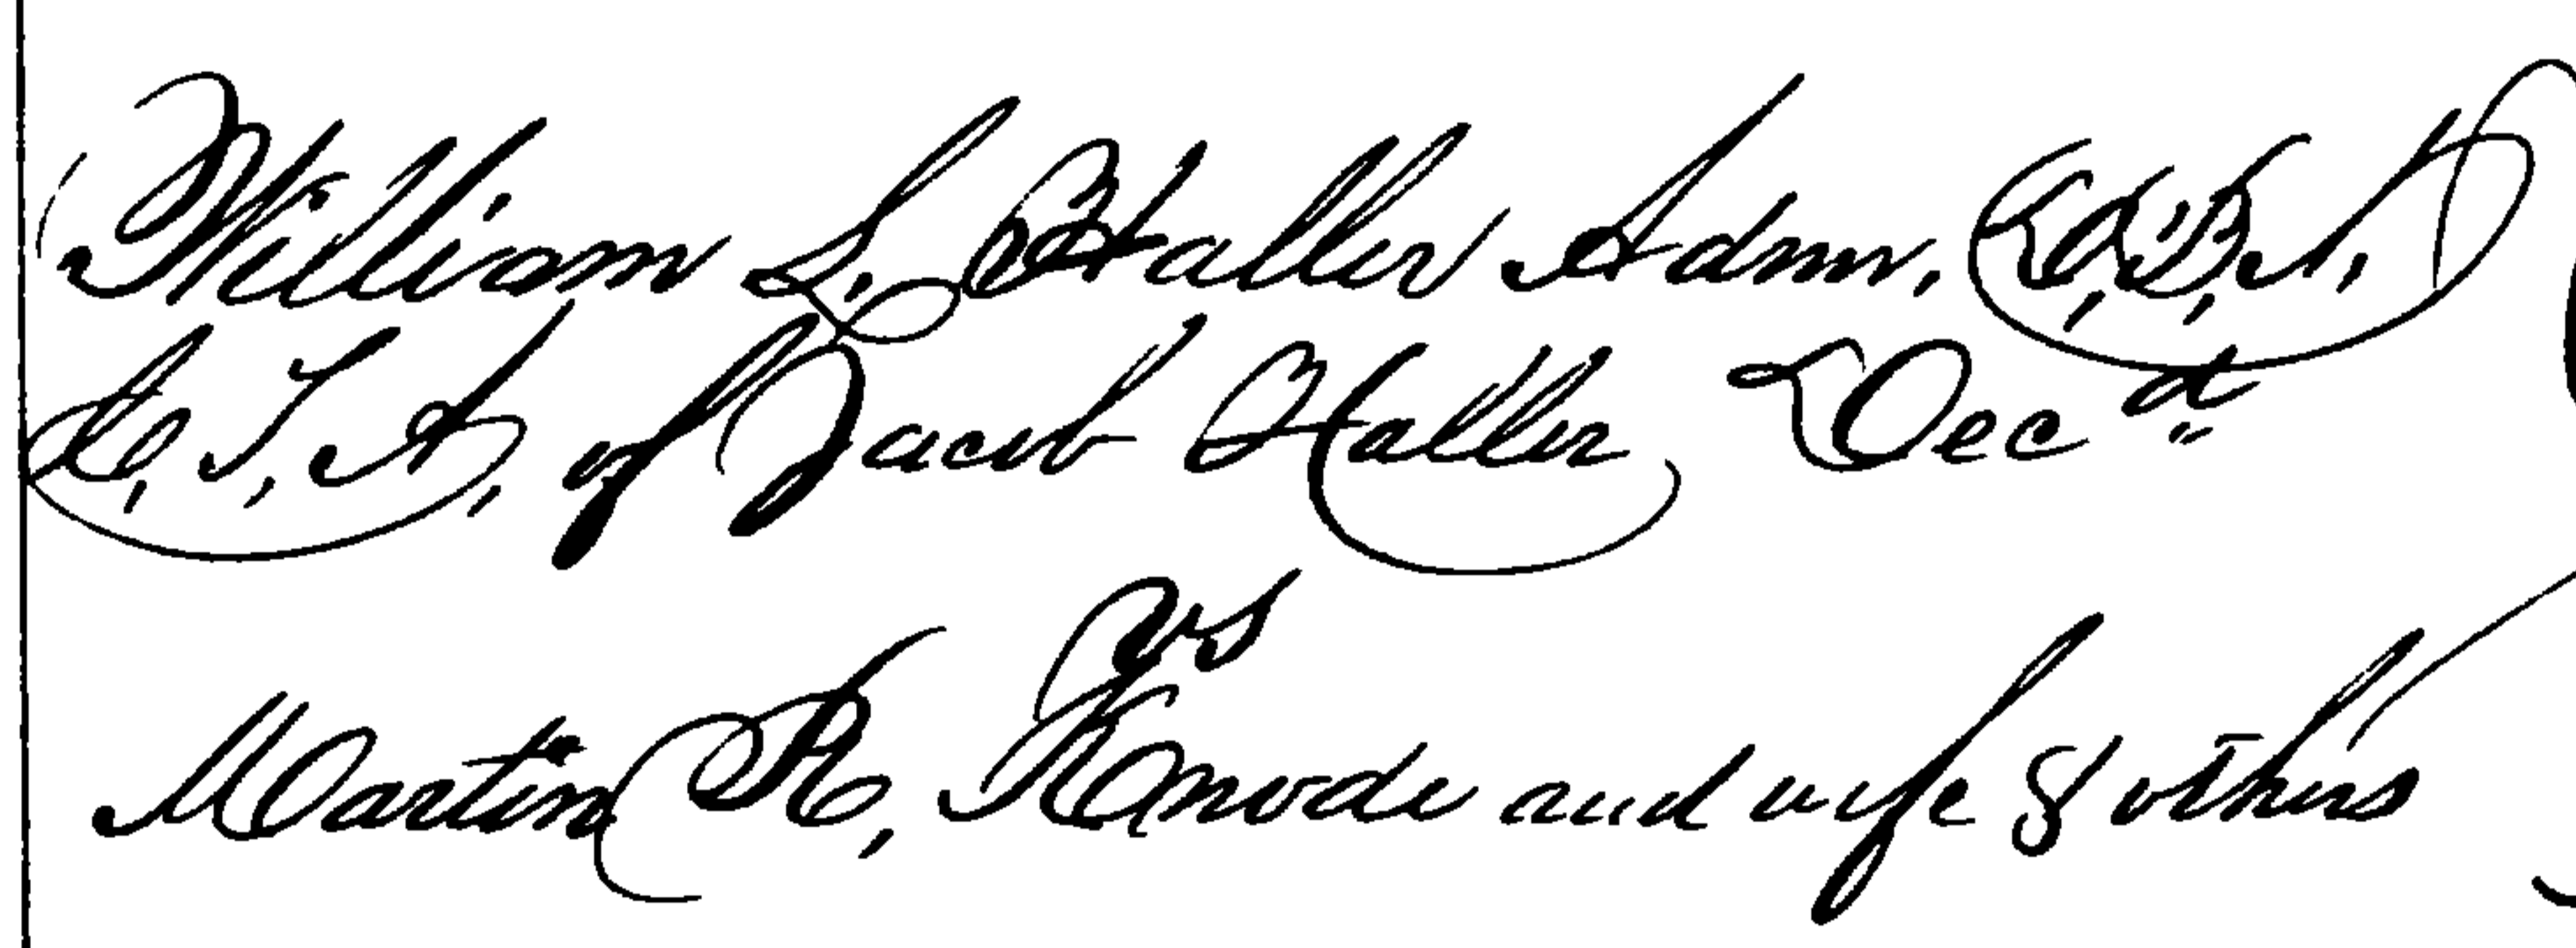 William L. Haller Admr. D.B.N.
C.T.A. of Jacob Haller Decd
vs
Martin R. Knode and wife & others